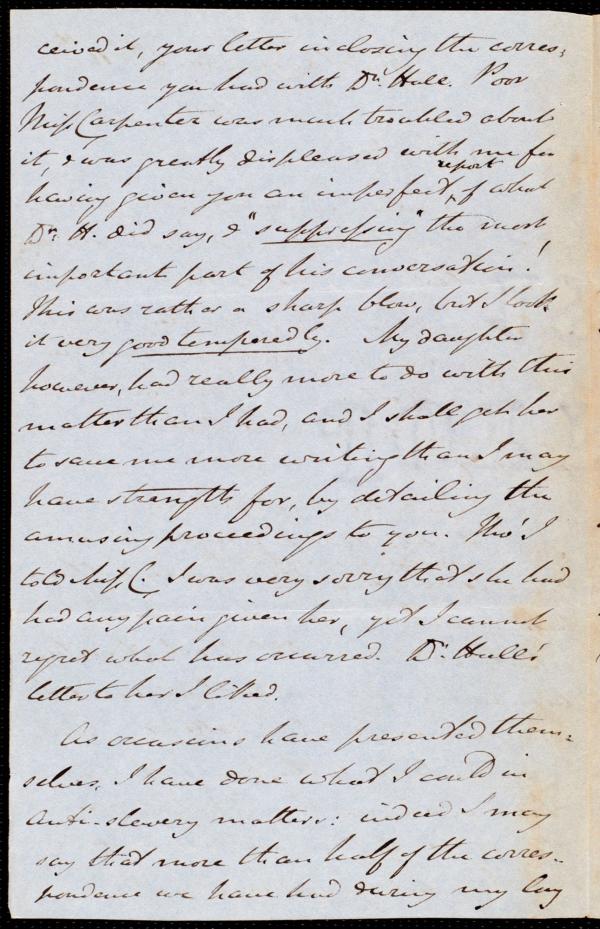 ceived it, your letter inclosing the corres-
pondence you had with Dr. Hull. Poor
Miss Carpenter was much troubled about
it, & was greatly displeased with me for
having given you an imperfect report of what
Dr. H. did say, & "suppressing" the most
important part of his conversation!
This was rather a sharp blow, but I took
it very good temperedly. My daughter
however, had really more to do with this
matter than I had, and I shall get her
to save me more writing than I may
have strength for, by detailing the
amusing proceedings to you. Tho' I
told Miss C. I was very sorry that she had
had any pain given her, yet I cannot
regret what has occurred. Dr. Hull's
letter to her I liked.
As occasions have presented them=
selves, I have done what I could in
Anti-slavery matters: indeed I may
say that more than half of the corres-
pondence we have had during my long